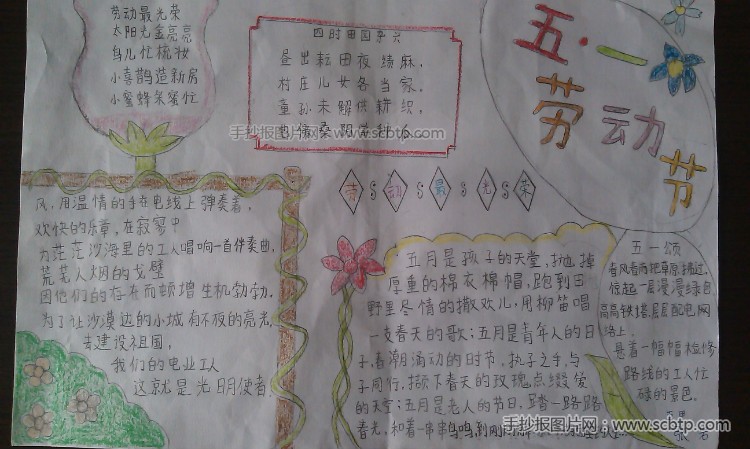 劳动最光荣
太阳光金亮亮
鸟儿忙梳妆
小喜鹊造新房
小蜜蜂采蜜忙
四时田园杂兴
昼出耘田夜绩麻,
村庄儿女各当家,
童孙未解供耕织,
桑阴
手抄报图片网 www.scbtp.com
五·一
劳动节
劳动最光荣
风,用温情的手在电线上弹奏着,
欢快的乐章,在寂寥中
为茫茫沙海里的工人唱响一首伴奏曲,
荒芜人烟的戈壁
因他们的存在而顿增生机勃勃,
为了让沙漠边的小城有不夜的亮光,
去建设祖国,
我们的电业工人
这就是光明使者,
五月是孩子的天堂,抛掉
厚重的棉衣棉帽,跑到田
野里尽情的撒欢儿,用柳笛唱
一支春天的歌;五月是青年人的日
子,春潮涌动的时节,执子之手,与
子同行,撷下春天的玫瑰点缀俊
的天堂;五月是老人的节日,踏一路路
春光,和着一串串鸟鸣,到
五一颂
春风着雨把草原拂过,
惊起一层漫漫绿包
高高铁塔,层层配电,网
络上,
悬着一幅幅检修
路线的工人忙
碌的景色。
手抄报图片网 www.scbtp.com